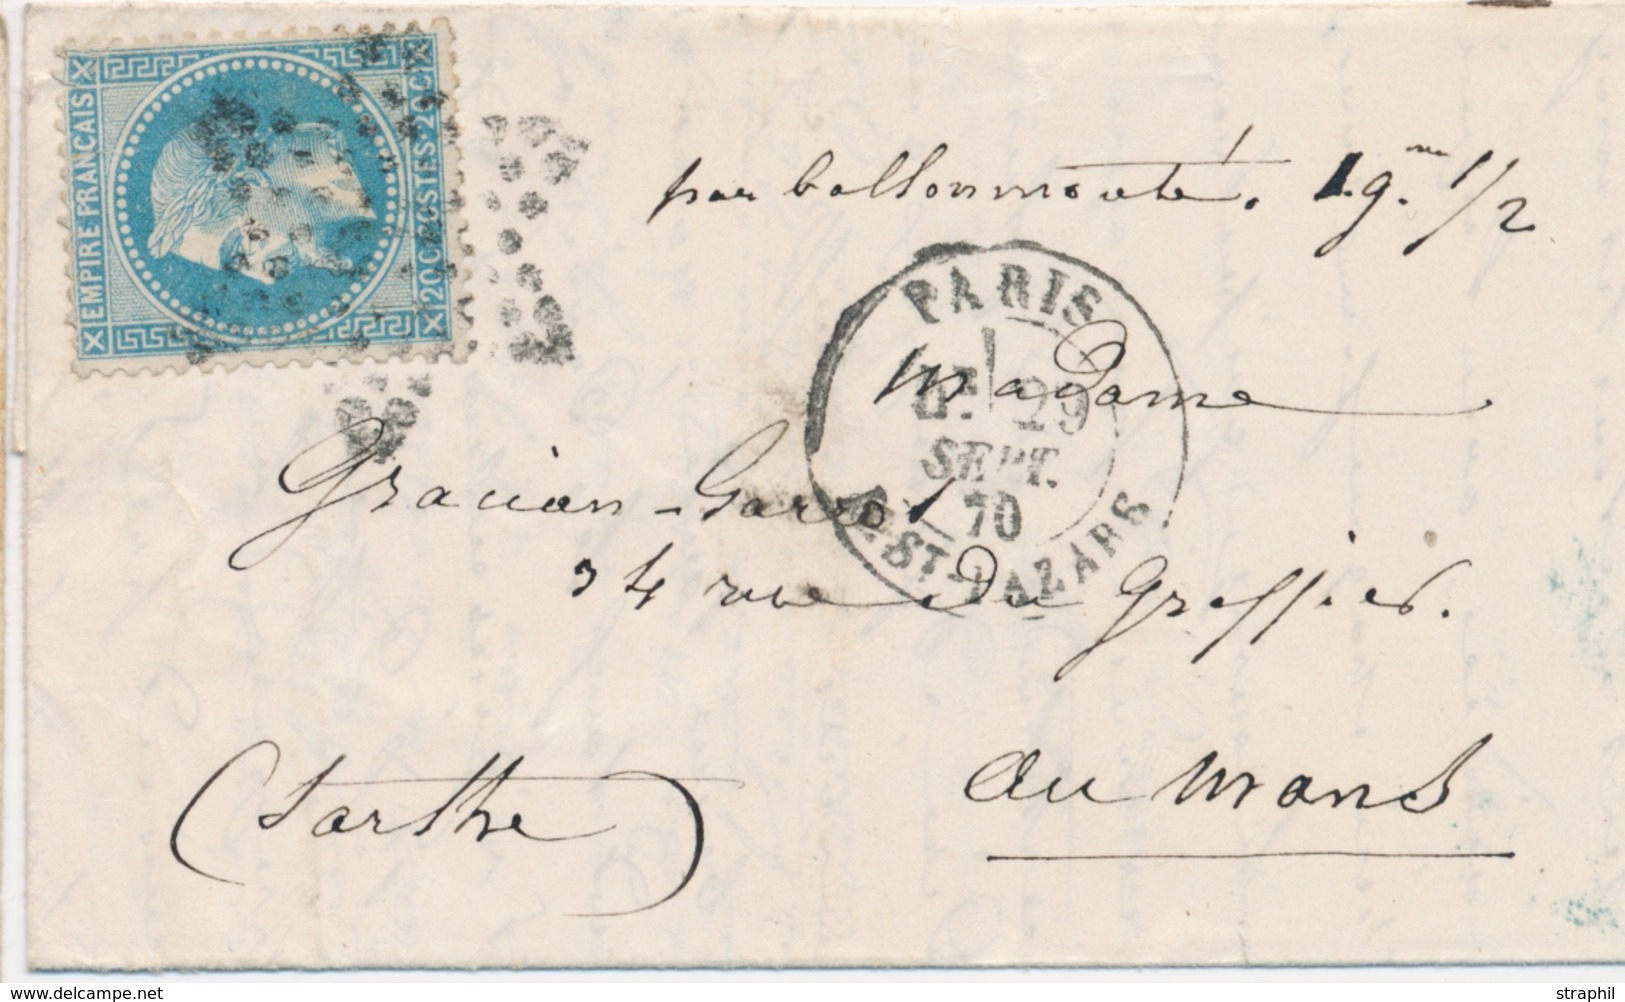 EMPIRE FRANCAIS
20C POSTES 20C
par ballon monté. 1 g.me 1/2
PARIS
29
SEPT.
70
R. ST-LAZARE
Madame
Gracian-Garros
34 rue du Greffier.
au Mans
(Sarthe)
www.delcampe.net
straphil